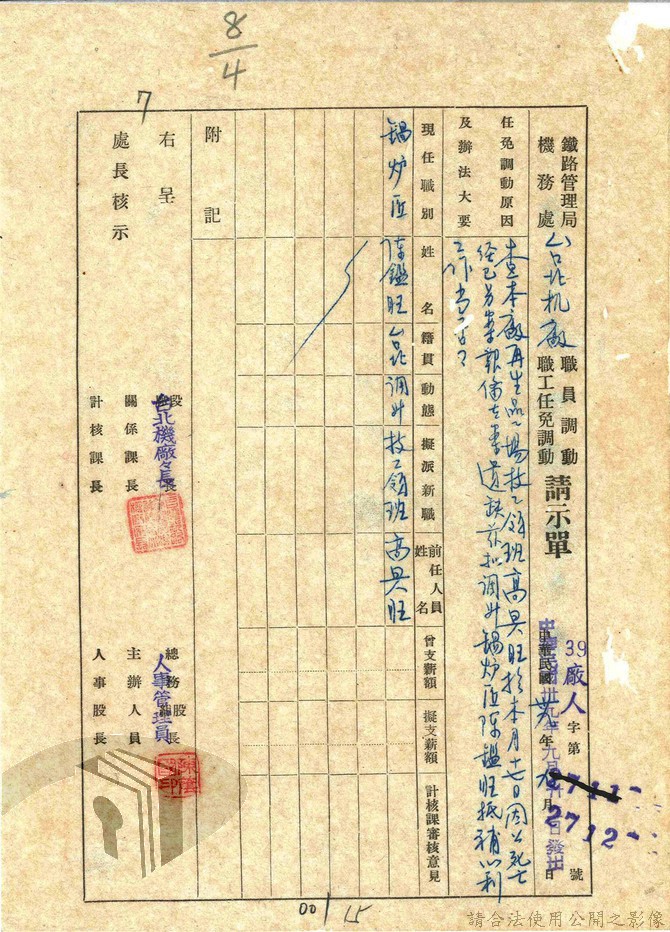 8/4
鐵路管理局
機務處
台北机廠
職員調動
職工任免調動
請示單
39廠人字第2712號
中華民國卅九年九月
日發出
任免調動原因
及辦法大要
查本廠再生品工場技工領班高興旺於本月十七日因公死亡
經已另案報備在案遺缺茲擬調升鍋爐匠陳鑑旺抵補以利
工作當否
現任職別
姓名
籍貫
動態
擬派新職
前任人員姓名
曾支薪額
擬支薪額
計核課審核意見
鍋炉匠
陳鑑旺
台北
調升
技工領班
高興旺
附記
右呈
處長核示
7
台北機廠廠長
段長
關係課長
計核課長
總務股長
主辦人員
人事管理員
人事股長
00/15
請合法使用公開之影像